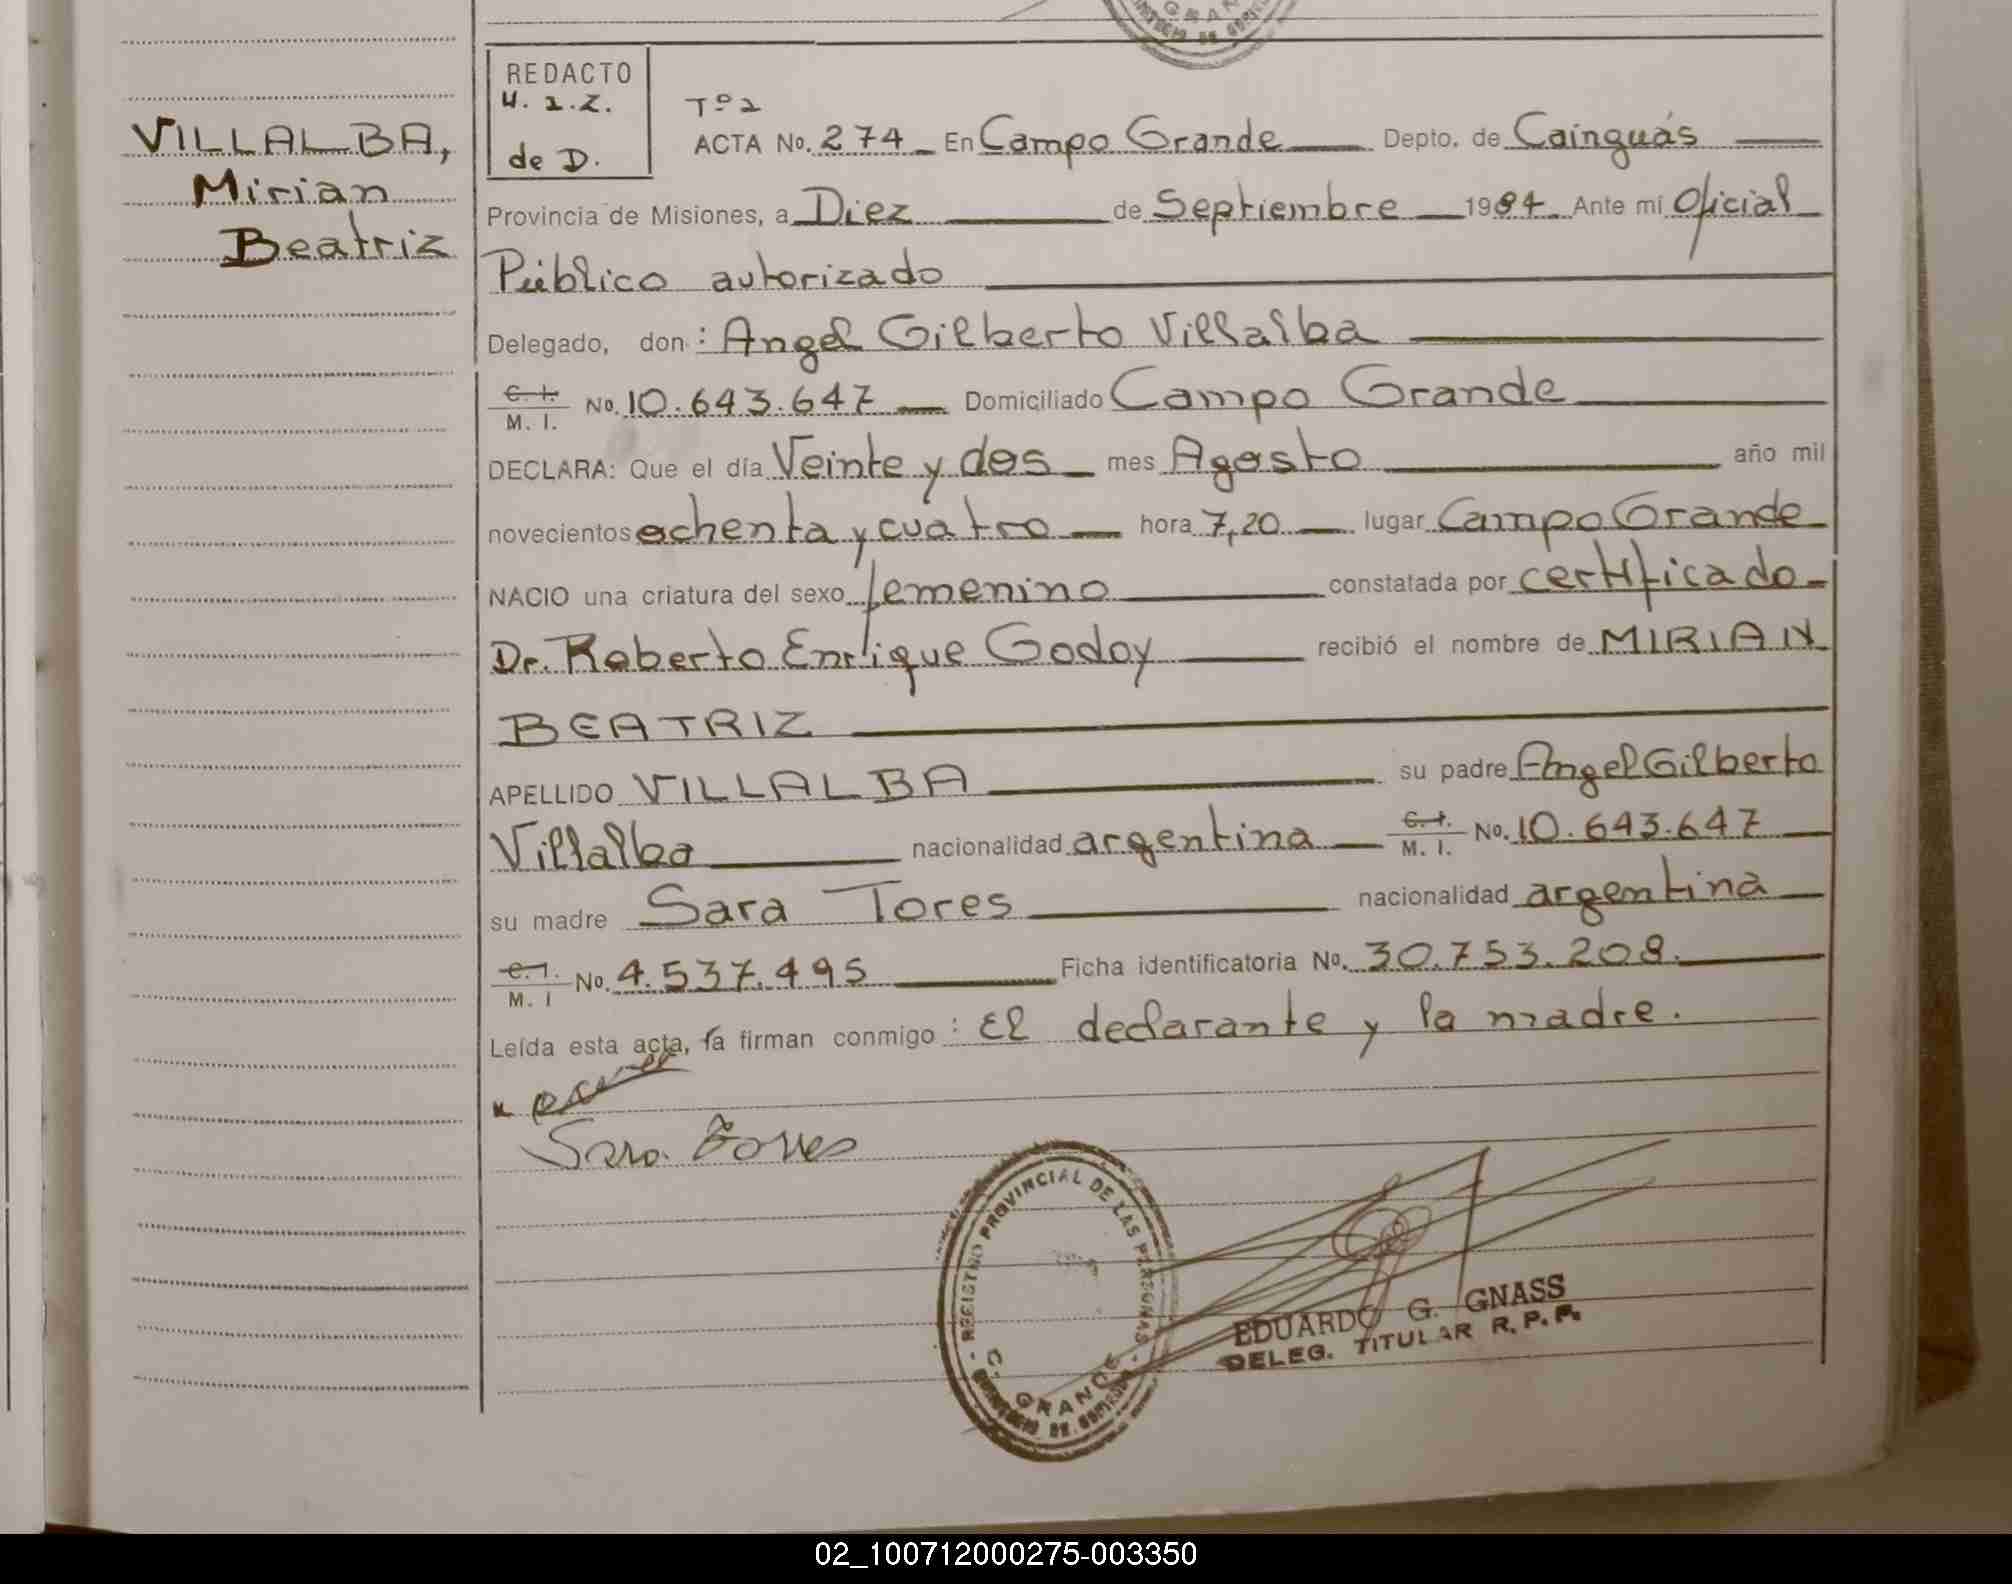 VILLALBA,
Mirian
Beatriz
REDACTO
de D.
Tº 2
ACTA No. 274 En Campo Grande Depto. de Cainguás
Provincia de Misiones, a Diez de Septiembre 1984 Ante mi Oficial
Público autorizado
Delegado, don: Angel Gilberto Villalba
C. I. M. I. No. 10.643.647 Domiciliado Campo Grande
DECLARA: Que el día Veinte y dos mes Agosto año mil
novecientos ochenta y cuatro hora 7,20 lugar Campo Grande
NACIO una criatura del sexo femenino constatada por certificado
Dr. Roberto Enrique Godoy recibió el nombre de MIRIAN
BEATRIZ
APELLIDO VILLALBA su padre Angel Gilberto
Villalba nacionalidad argentina C. I. M. I. No. 10.643.647
su madre Sara Tores nacionalidad argentina
C. I. M. I No. 4.537.495 Ficha identificatoria No. 30.753.208.
Leída esta acta, la firman conmigo: El declarante y la madre.
Sara Torres
REGISTRO PROVINCIAL DE LAS PERSONAS
C. GRANDE
EDUARDO G. GNASS
DELEG. TITULAR R. P. P.
02_100712000275-003350